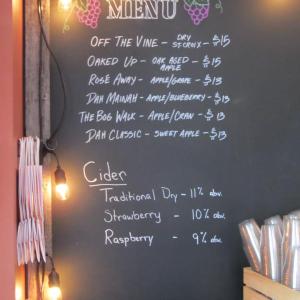 MENU
OFF THE VINE - DRY ST. CROIX - 15
OAKED UP - OAK AGED APPLE - 15
ROSÉ AWAY - APPLE/GRAPE - 13
DAH MAINAH - APPLE/BLUEBERRY - 13
THE BOG WALK - APPLE/CRAN - 13
DAH CLASSIC - SWEET APPLE - 13
Cider
Traditional Dry - 11% abv.
Strawberry - 10% abv.
Raspberry - 9% abv.